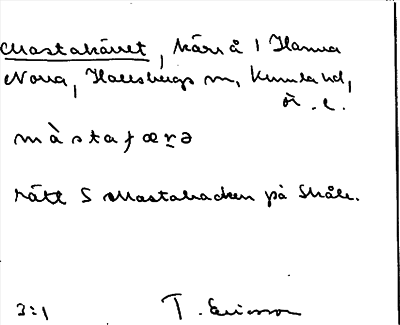 Mastakärret, kärr å i Hanna
Nova, Hallsbergs m, Kumla hd,
Ö.l.
màstaɟæṛə
rätt S Mastabacken på Skåle.
3:1 T. Ericsson